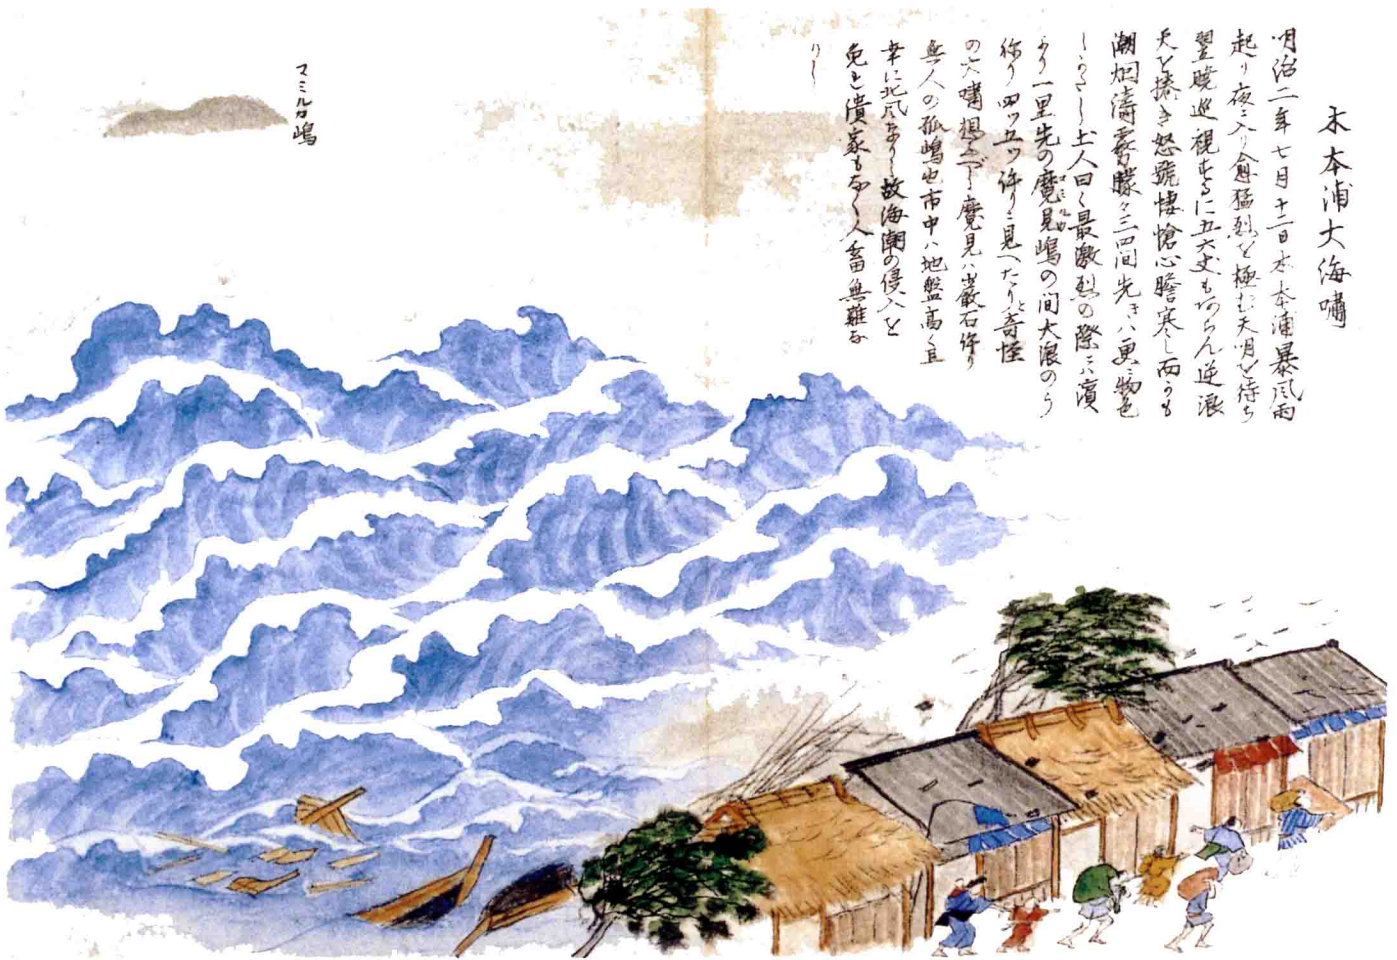 木本浦大海嘯
明治二年七月十三日木本浦暴風雨
起リ夜ニ入リ愈猛烈を極む天明を待ち
翌暁巡視するに五六丈もあらん逆浪
天を捲き怒號悽愴心膽寒し而かも
潮烟濤霧朦々三四間先きハ更ニ物色
しかたし土人曰く最激烈の際ニハ濱
より一里先の魔見嶋の間大浪のう
ねり四ツ五ツ許りニ見へたりと奇怪
の大嘯想ふべし魔見ハ岩巌石許り
無人の孤嶋也市中ハ地盤高く且
幸に北風なりし故海潮の侵入を
免と潰家もなく人畜無難な
りし
マミルカ嶋